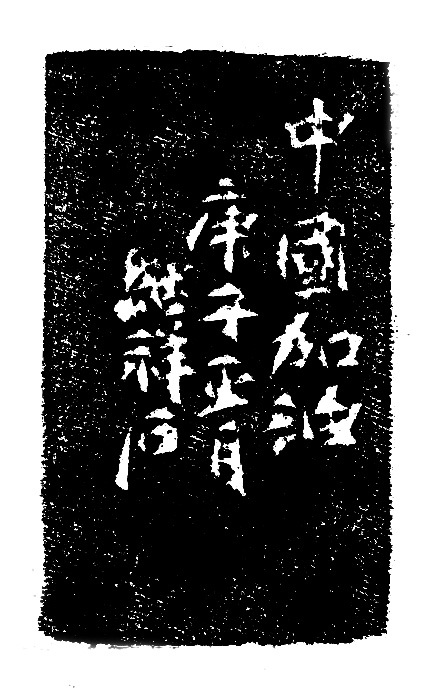 中國加油
庚子正月
祥石